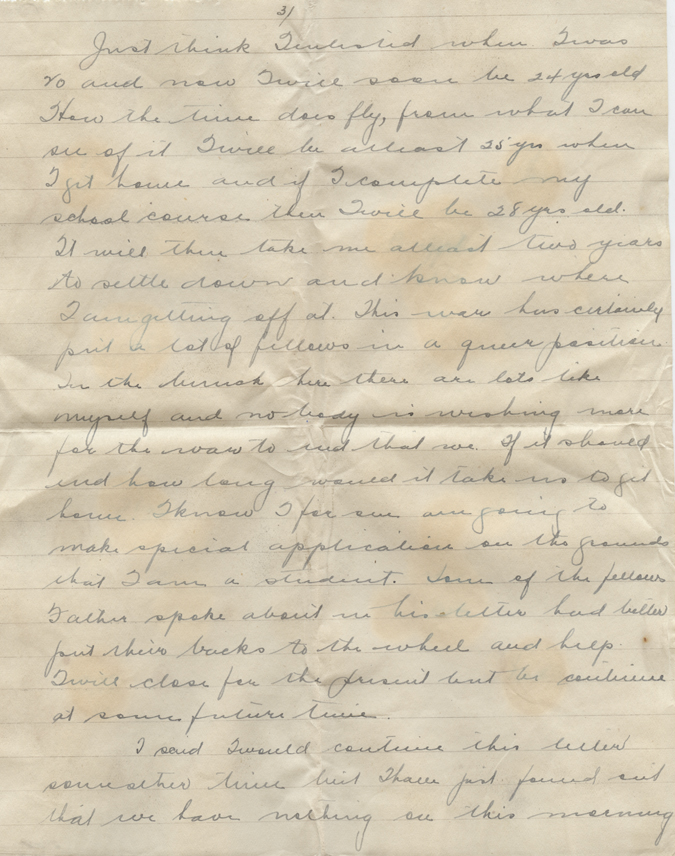 3/
Just think I enlisted when I was
20 and now I will soon be 24 yrs old
How the time does fly, from what I can
see of it I will be atleast 25 yrs when
I get home and if I complete my
school course then I will be 28 yrs old.
It will then take me atleast two years
to settle down and know where
I am getting off at. This war has certainly
put a lot of fellows in a queer position
In the bunch here there are lots like
myself and nobody is wishing more
for the war to end that we. If it should
end how long would it take us to get
home. I know I for one am going to
make special application on the grounds
that I am a student. Some of the fellows
Father spoke about in his letter had better
put their backs to the wheel and help.
I will close for the present but be continue
at some future time.
I said I would contine this letter
someother time but I have just found out
that we have nothing on this morning